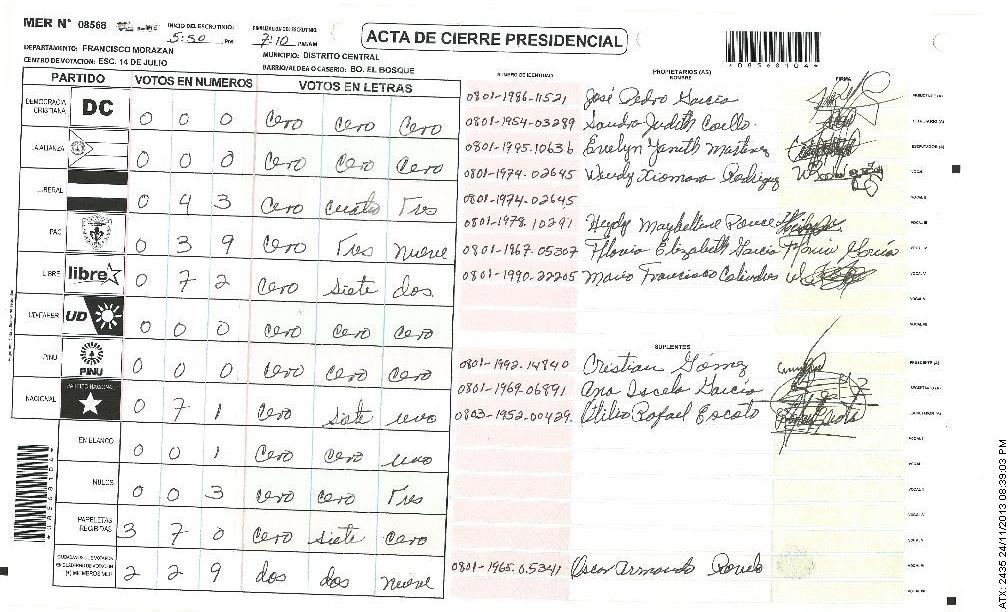 MER N° 08568
INICIO DEL ESCRUTINIO:
5:50 PM
FINALIZACION DEL ESCRUTINIO:
7:10 PM/AM
ACTA DE CIERRE PRESIDENCIAL
*08568104*
DEPARTAMENTO: FRANCISCO MORAZAN
MUNICIPIO: DISTRITO CENTRAL
CENTRO DE VOTACION: ESC. 14 DE JULIO
BARRIO/ALDEA O CASERIO: BO. EL BOSQUE
PARTIDO VOTOS EN NUMEROS VOTOS EN LETRAS
DEMOCRACIA CRISTIANA DC 0 0 0 Cero Cero Cero
LA ALIANZA 0 0 0 Cero Cero Cero
LIBERAL 0 4 3 Cero Cuatro Tres
PAC 0 3 9 Cero Tres Nueve
LIBRE libre 0 7 2 Cero Siete dos
UD-FAPER UD 0 0 0 Cero Cero Cero
PINU PINU 0 0 0 Cero Cero Cero
NACIONAL PARTIDO NACIONAL 0 7 1 Cero Siete uno
EN BLANCO 0 0 1 Cero Cero uno
NULOS 0 0 3 Cero Cero Tres
PAPELETAS RECIBIDAS 3 7 0 Cero Siete Cero
CIUDADANOS QUE VOTARON EN CUADERNO DE VOTACION (+) MIEMBROS MER 2 2 9 dos dos Nueve
NUMERO DE IDENTIDAD PROPIETARIOS (AS) NOMBRE FIRMA
0801-1986-11521 José Pedro Garcia PRESIDENTE (A)
0801-1954-03289 Sandra Judith Coello SECRETARIO (A)
0801-1995-10636 Evelyn Janeth Martinez ESCRUTADOR (A)
0801-1974-02645 Wendy Xiomara Rodriguez VOCAL I
0801-1974-02645 VOCAL II
0801-1978-10291 Heydy Maybelline Ponce VOCAL III
0801-1967-05307 Flavia Elizabeth Garcia Flavia Garcia VOCAL IV
0801-1990-22205 Mario Francisco VOCAL V
SUPLENTES
0801-1992-14840 Cristian Gómez PRESIDENTE (A)
0801-1969-06891 Ana Iscela Garcia SECRETARIO (A)
0803-1952-00429 Otilio Rafael ESCRUTADOR (A)
VOCAL I
0801-1965-05341 Oscar Armando
*08568104*
ATX: 2435 24/11/2013 08:39:03 PM